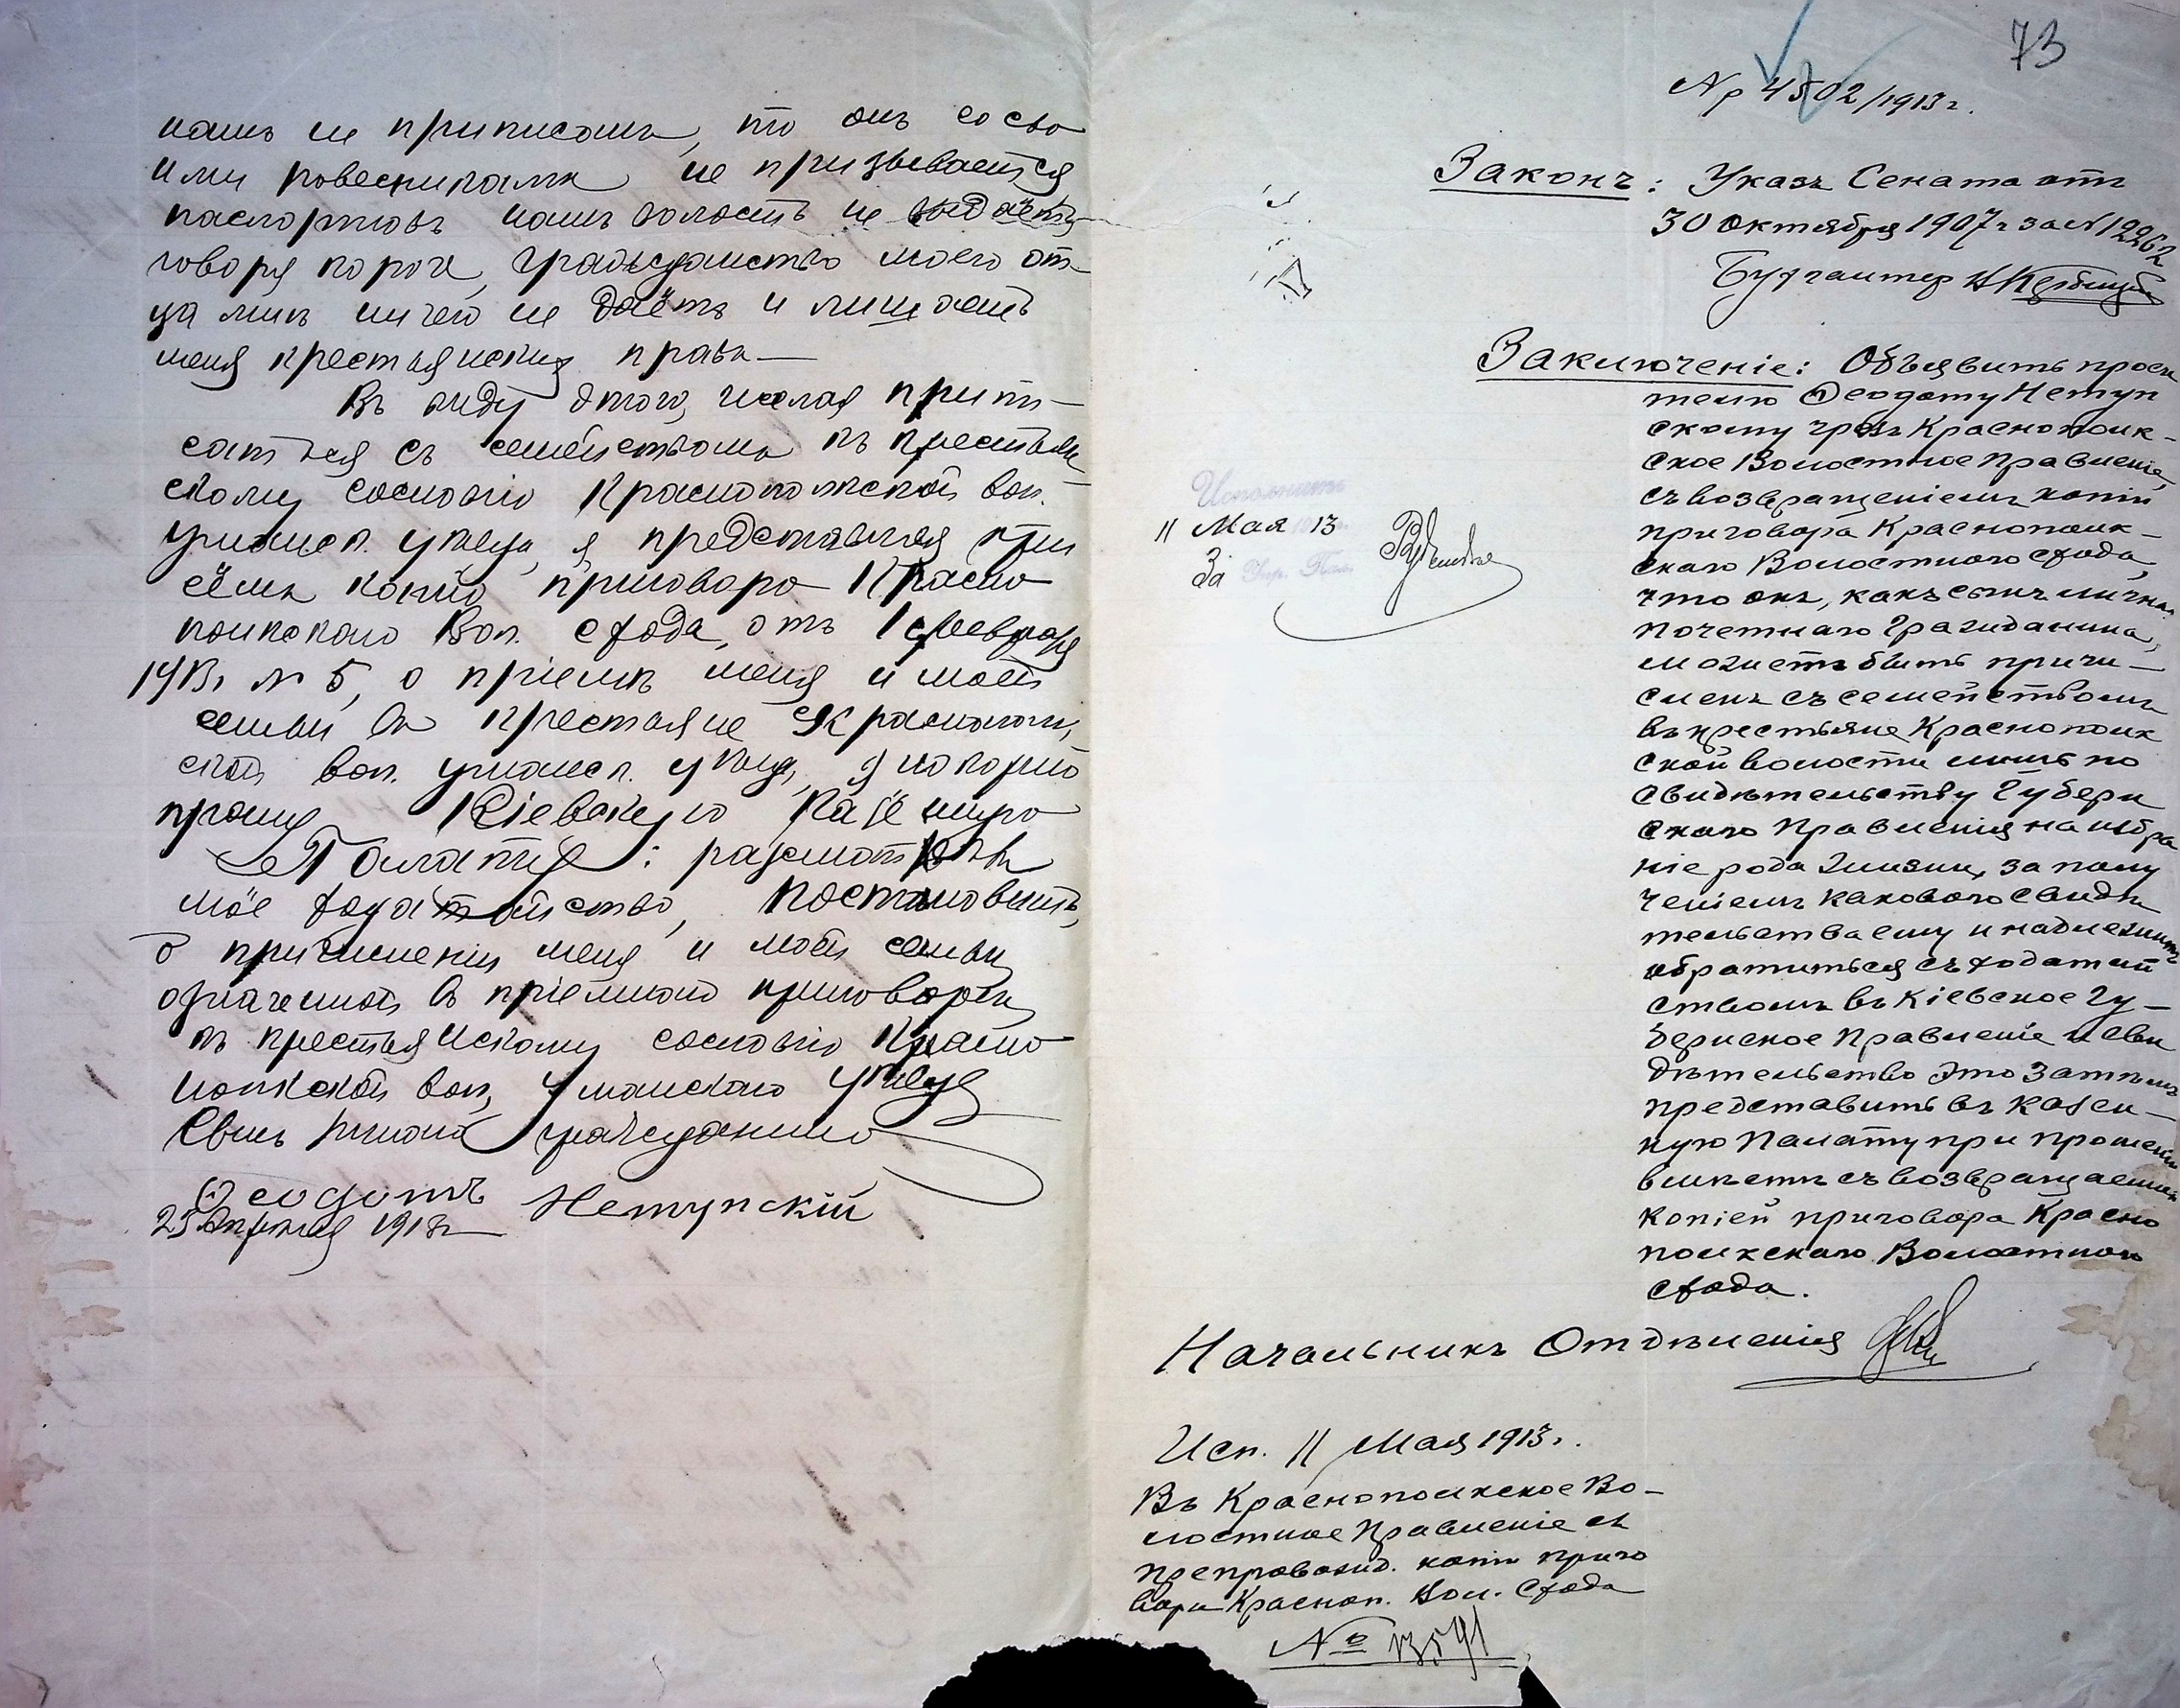 нашъ не приписанъ, то онъ со сво
ими ровесниками не призывается,
паспортовъ нашъ волость не выдаётъ,
говоря короче, гражданство моего от-
ца мнѣ ничего не даётъ и лишаетъ
меня крестьянскихъ правъ—
Въ виду этого, желая припи-
саться съ семействомъ къ крестьян-
скому сословію Краснопольской вол.
уманск. уѣзда, я представляя при
сёмъ копію приговора Красно
польскаго Вол. схода, отъ 1 февраля
1913 г № 5, о пріемѣ меня и моей
семьи въ крестьяне Краснополь,
ской вол. уманск. уѣзда, покорно
прошу Кіевскую Казённую
Палату: разсмотрѣть
моё ходатайство, постановить,
о причисленіи меня и моей семьи
означенной въ пріёмномъ приговорѣ
къ крестьянскому сословію Красно
польской вол, Уманскаго уѣзда
Сынъ гражданина
Ѳеодотъ Нетупскій
25 Апрѣля 1913 г
73
№ 4502/1913 г.
Законъ: Указъ Сената отъ
30 октября 1907 г за №
Бухгалтер
Заключеніе: Объявить проси
телю Ѳеодоту Нетуп
скому чрезъ Краснопольк-
ское Волостное Правленіе,
съ возвращеніемъ копіи
приговора Краснопольк-
скаго Волостного схода,
что онъ, какъ сынъ личнаг
почетнаго гражданина,
можетъ быть причи-
сленъ съ семействомъ
въ крестьяне Краснополк
ской волости лишь по
свидѣтельству Губерн
скаго Правленія на избра
ніе рода жизни, за полу
ченіемъ какового свидѣ
тельства ему и надлежитъ
обратиться съ ходатай
ствомъ въ Кіевское Гу-
бернское Правленіе и сви
дѣтельство это затѣмъ
представить въ Казен-
ную Палату при прошеніи
вмѣстѣ съ возвращаемой
копіей приговора Красно
польскаго Волостного
схода.
Исполнить
11 Мая 13
За Упр. Пал.
Начальникъ Отдѣленія
Исп. 11 Мая 1913 г.
Въ Краснополкское Во-
лостное Правленіе съ
препровожд. копіи приго
вора Красноп. Вол. Схода
№ 13591